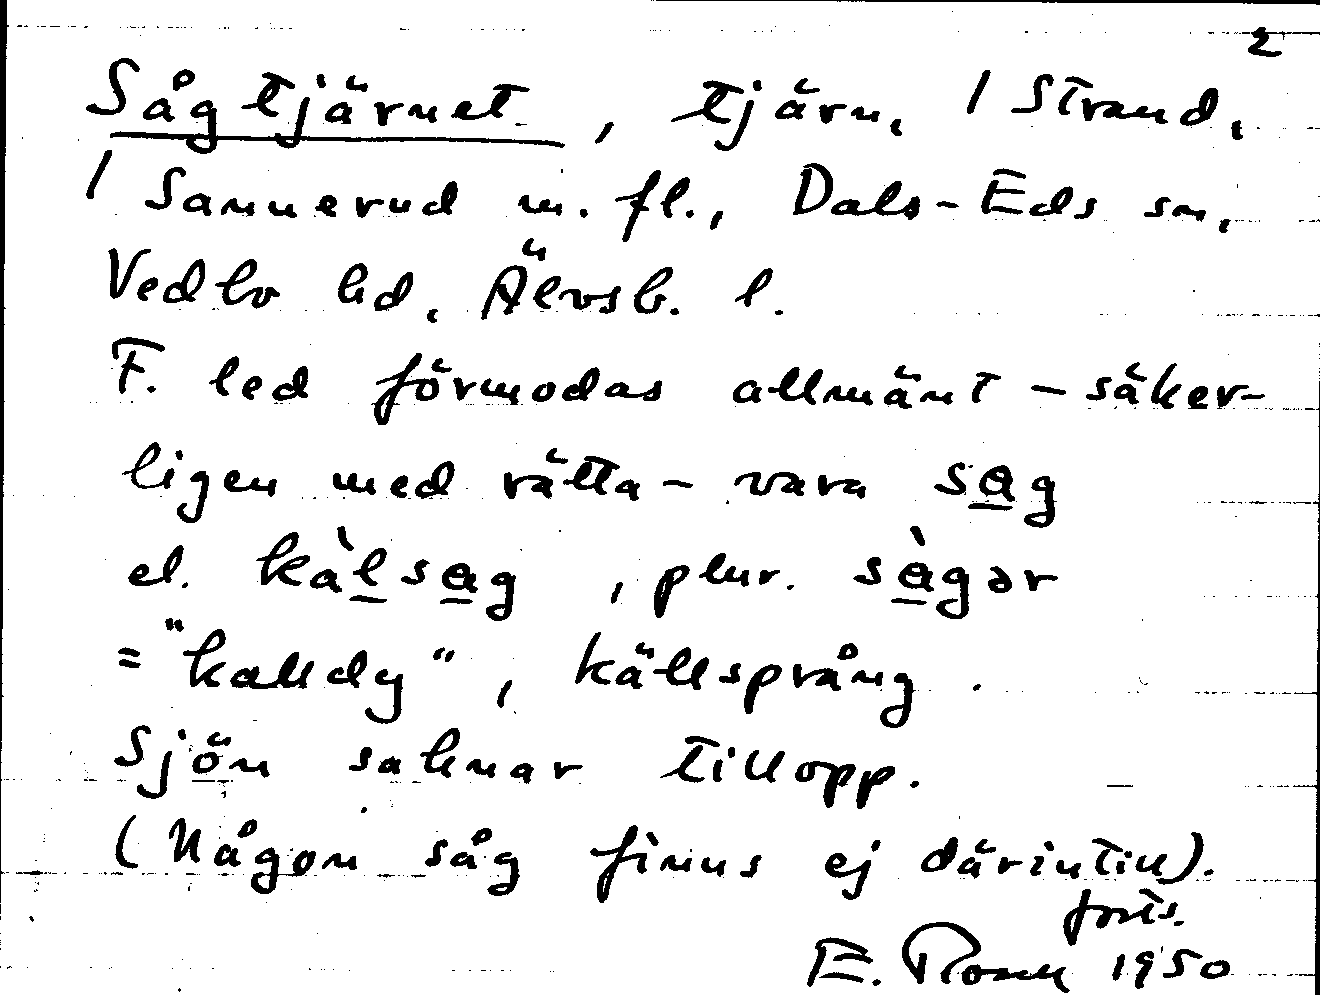 2
Sågtjärnet, tjärn, / Strand,
/ Sannerud m. fl., Dals-Eds sn,
Vedbo hd, Älvsb. l.
F. led förmodas allmänt - säker-
ligen med rätta - vara sag
el. kàlsag, plur. sàgər
= "kalldy", källsprång.
Sjön saknar tillopp.
(Någon såg finns ej därintill).
forts.
E. Rosell 1950